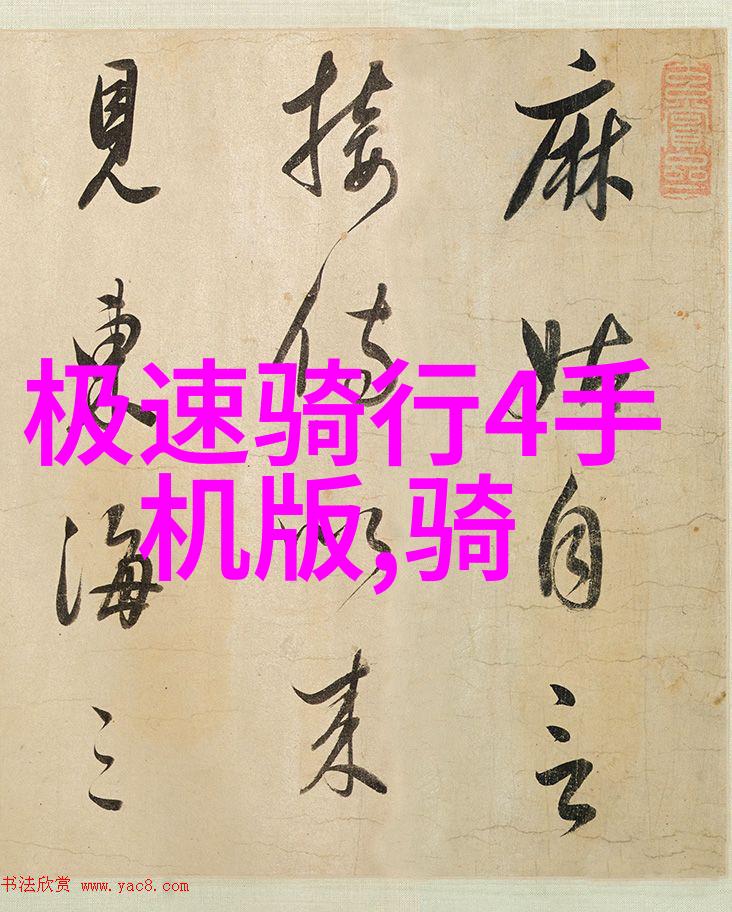 麻姑自言
接侍以来
見東海三
极速骑行4手
机版,骑
书法欣赏 www.yac8.com